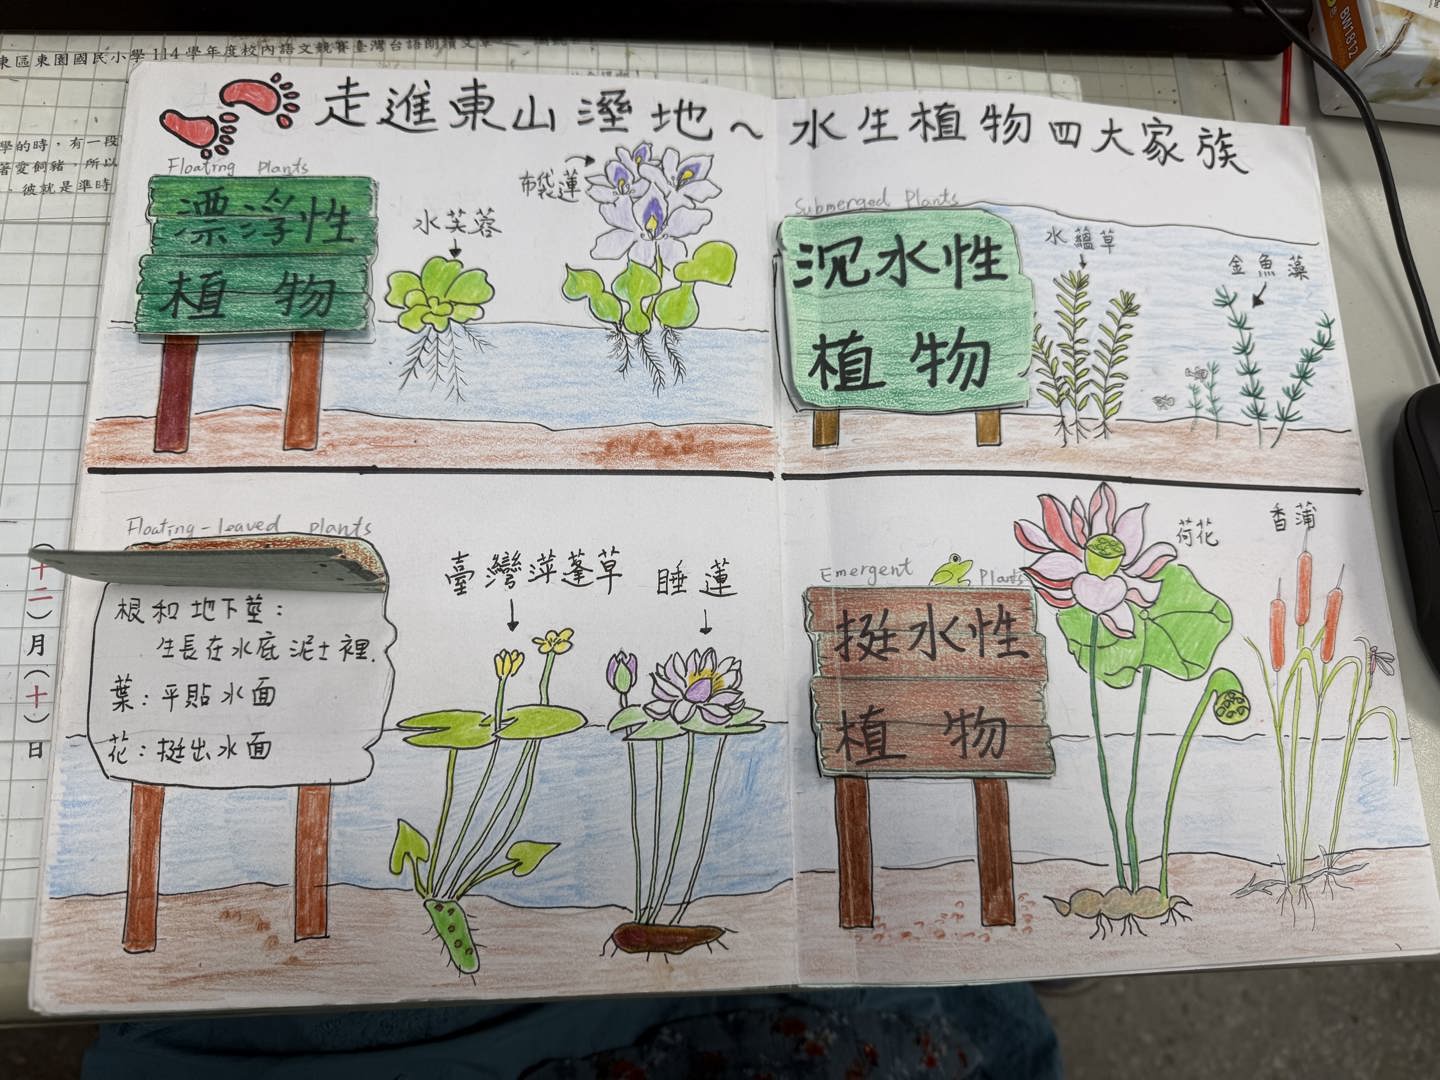 東區東園國民小學114學年度校內語文競賽臺灣台語朗讀文章
學的時，有一段
著愛飼豬，所以
，彼就是準時
走進東山溼地～水生植物四大家族
Floating plants
漂浮性
植物
水芙蓉
布袋蓮
Submerged Plants
沉水性
植物
水蘊草
金魚藻
Floating-leaved plants
根和地下莖：
生長在水底泥土裡.
葉：平貼水面
花：挺出水面
臺灣萍蓬草
睡蓮
Emergent Plants
挺水性
植物
荷花
香蒲
(十二)月(十)日
8W1812